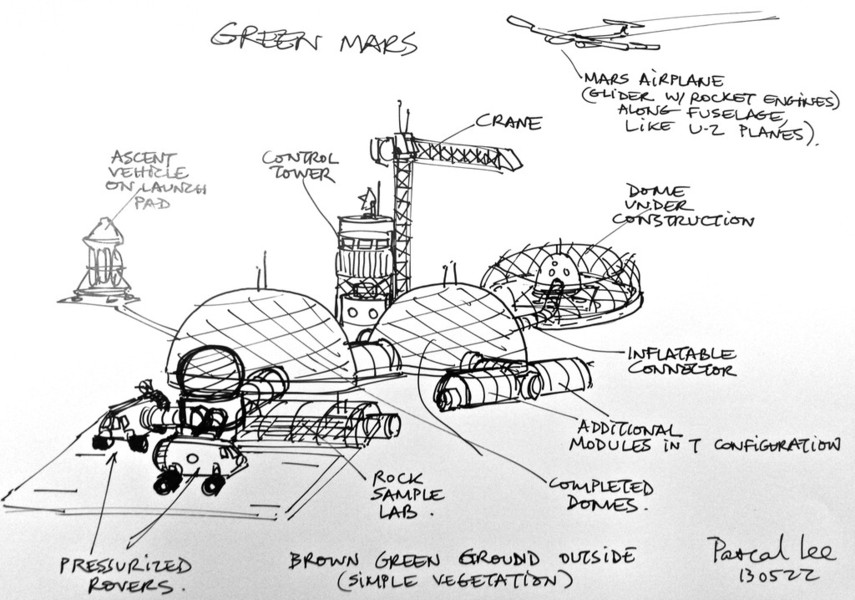 GREEN MARS
MARS AIRPLANE
(GLIDER W/ ROCKET ENGINES)
ALONG FUSELAGE,
LIKE U-2 PLANES).
CRANE
ASCENT
VEHICLE
ON LAUNCH
PAD
CONTROL
TOWER
DOME
UNDER
CONSTRUCTION
INFLATABLE
CONNECTOR
ADDITIONAL
MODULES IN T CONFIGURATION
ROCK
SAMPLE
LAB.
COMPLETED
DOMES.
PRESSURIZED
ROVERS.
BROWN GREEN GROUND OUTSIDE
(SIMPLE VEGETATION)
Pascal Lee
130522